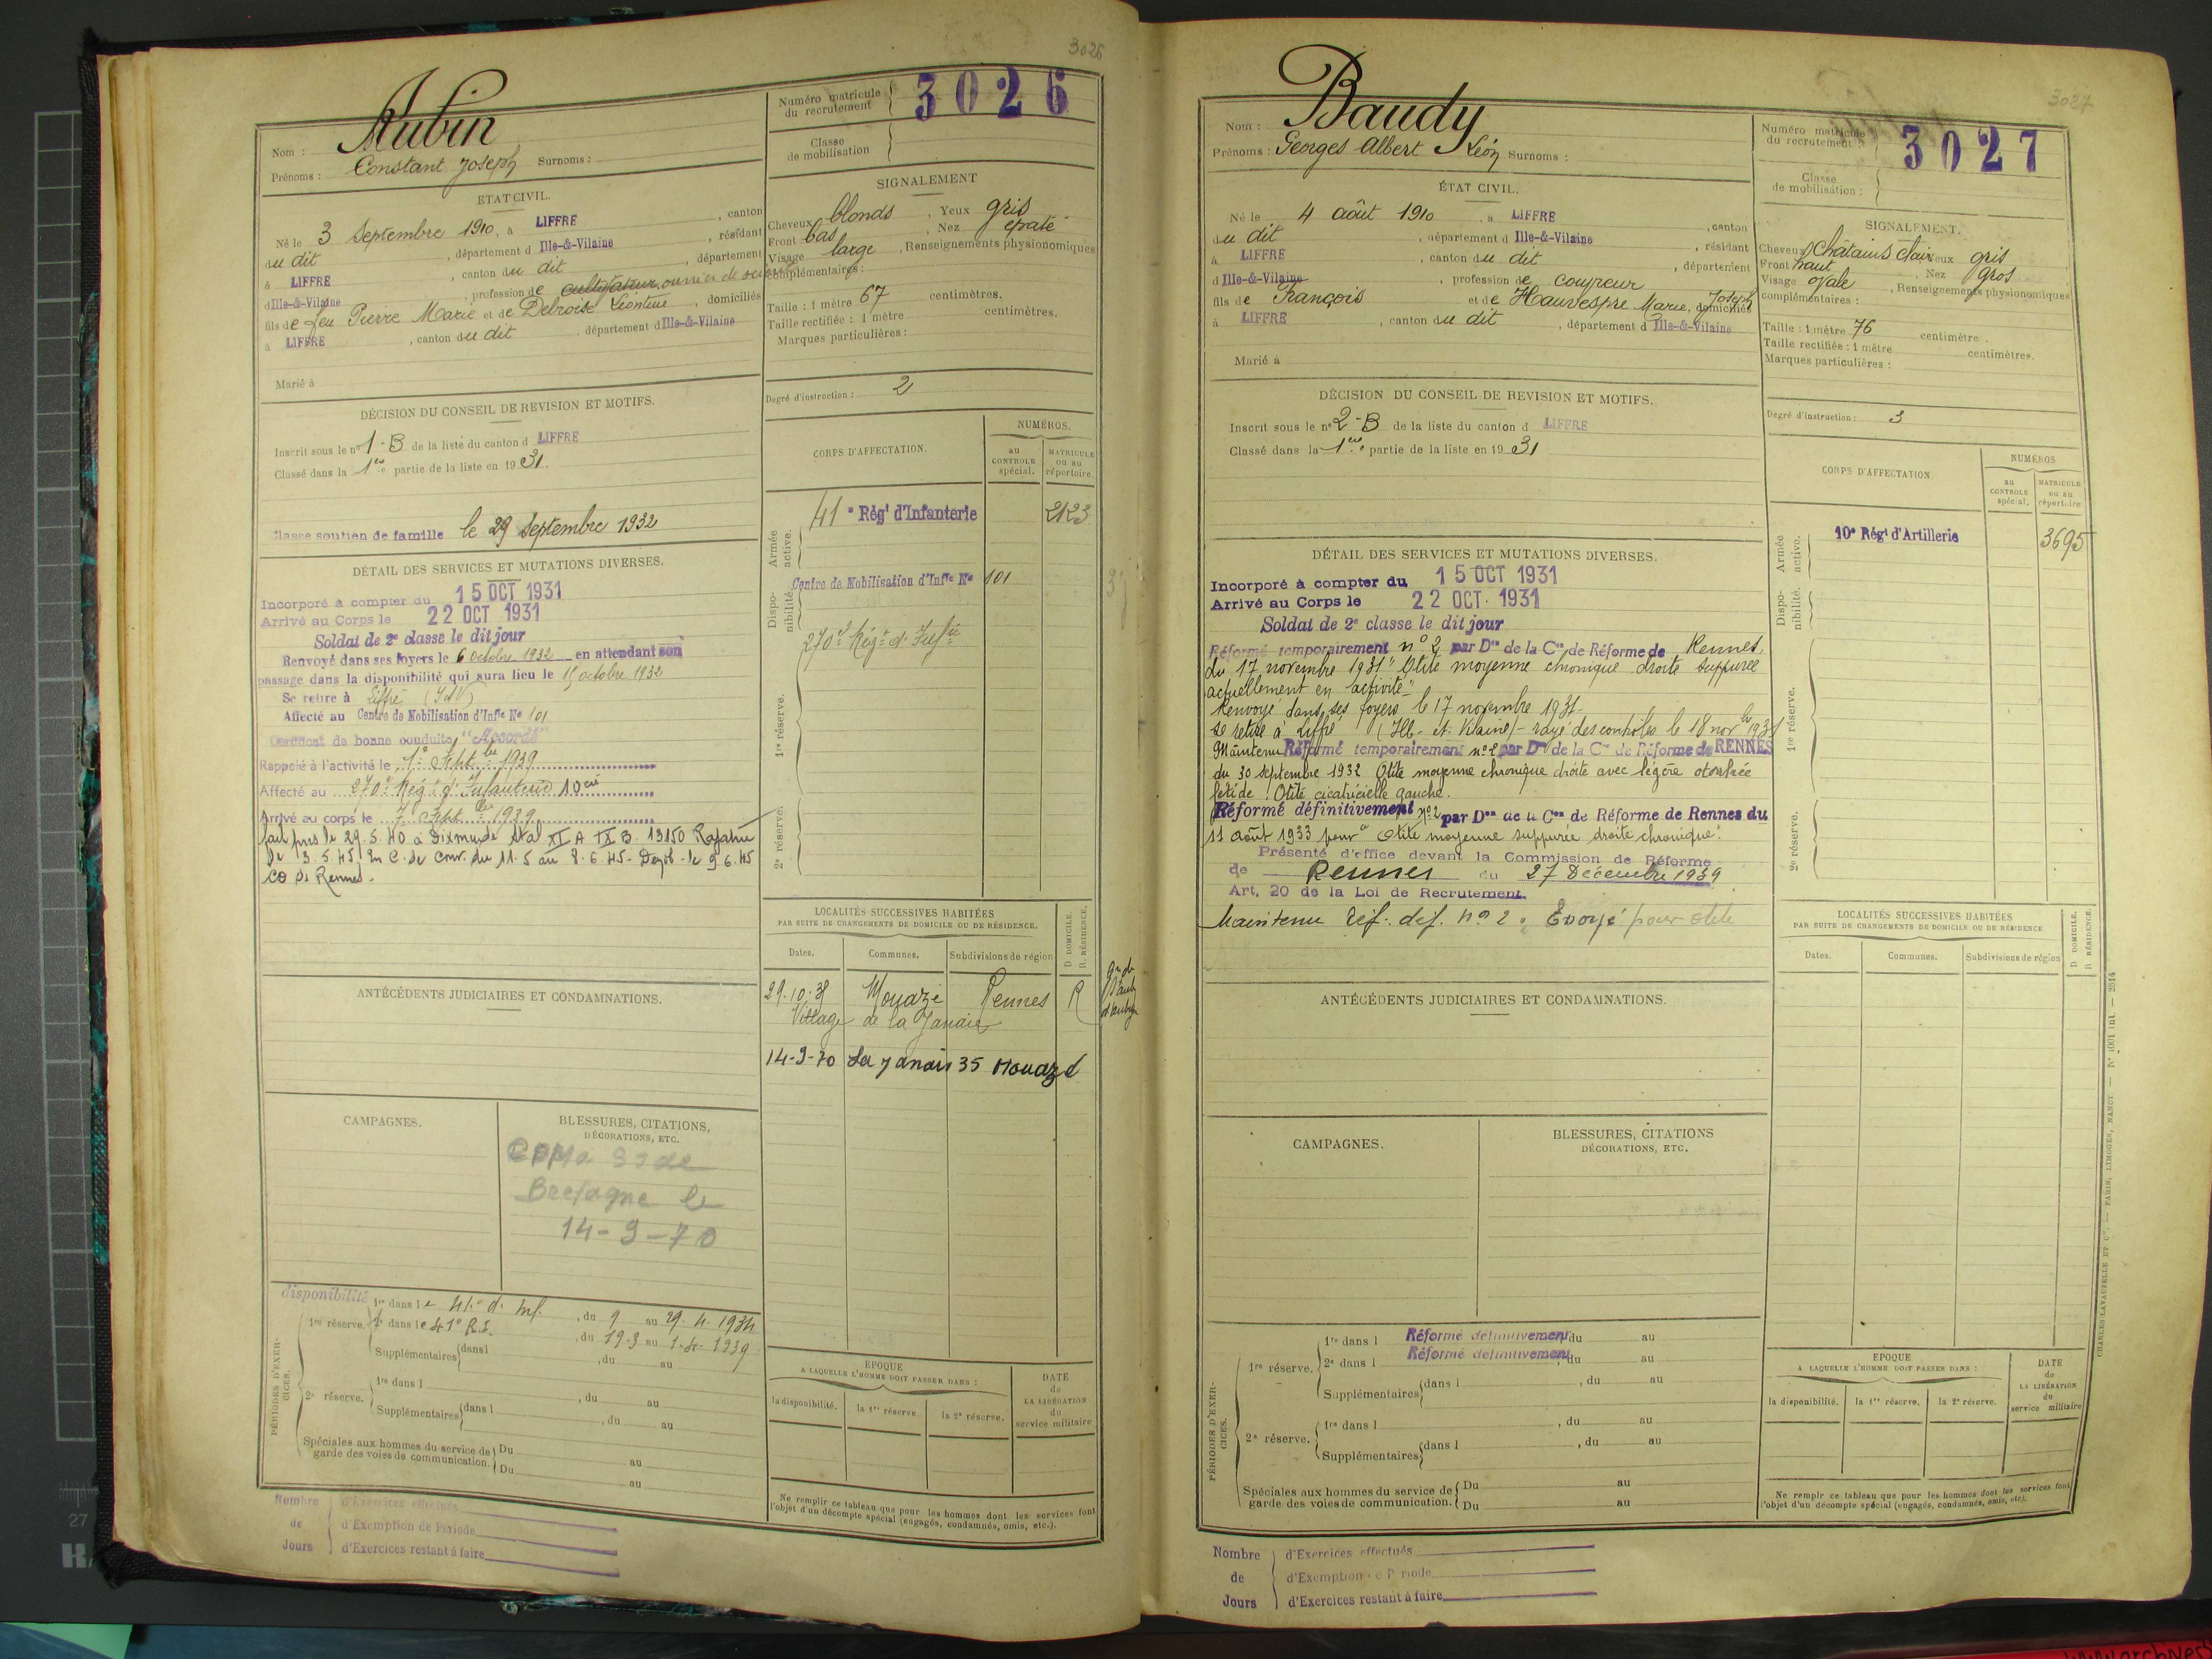 3026
Nom : Aubin
Prénoms : Constant Joseph Surnoms :
Numéro matricule du recrutement 3026
Classe de mobilisation
ETAT CIVIL.
Né le 3 Septembre 1910, à LIFFRE , canton
du dit , département d Ille-&-Vilaine , résidant
à LIFFRE , canton du dit , département
d Ille-&-Vilaine , profession de cultivateur, ouvrier de
fils de feu Pierre Marie et de Delroise Léontine , domiciliés
à LIFFRE , canton du dit , département d Ille-&-Vilaine
Marié à
SIGNALEMENT
Cheveux blonds , Yeux gris
Front bas , Nez épaté
Visage large , Renseignements physionomiques
complémentaires :
Taille : 1 mètre 67 centimètres.
Taille rectifiée : 1 mètre centimètres.
Marques particulières :
Degré d'instruction : 2
DÉCISION DU CONSEIL DE REVISION ET MOTIFS.
Inscrit sous le n° 1-B de la liste du canton d LIFFRE
Classé dans la 1re partie de la liste en 1931.
Classe soutien de famille le 29 Septembre 1932
DÉTAIL DES SERVICES ET MUTATIONS DIVERSES.
Incorporé à compter du 15 OCT 1931
Arrivé au Corps le 22 OCT 1931
Soldat de 2e classe le dit jour
Renvoyé dans ses foyers le 6 Octobre 1932 en attendant son
passage dans la disponibilité qui aura lieu le 15 octobre 1932
Se retire à Liffré (I&V)
Affecté au Centre de Mobilisation d'Infie No 101
Certificat de bonne conduite "Accordé"
Rappelé à l'activité le 1er Septbre 1939
Affecté au 270e Régt d'Infanterie 10 cie
Arrivé au corps le 7 Septbre 1939
Fait pris le 29.5.40 à Dixmude Stal XI A IX B 13150 Rapatrié
le 3.5.45 En C. de Conv. du 11.5 au 8.6.45 - Dépt le 9.6.45
CO de Rennes.
CORPS D'AFFECTATION.
NUMÉROS.
au CONTROLE spécial.
MATRICULE ou au répertoire.
Armée active.
41e Régt d'Infanterie 2123
Disponibilité.
Centre de Mobilisation d'Infie No 101
270e Régt d'Infie
1re réserve.
2e réserve.
LOCALITÉS SUCCESSIVES HABITÉES
PAR SUITE DE CHANGEMENTS DE DOMICILE OU DE RÉSIDENCE.
Dates. Communes, Subdivisions de région D DOMICILE. R. RÉSIDENCE.
29.10.38 Mouazé Rennes R
Village de la Janaie
14-9-70 La Janais 35 Mouazé
ANTÉCÉDENTS JUDICIAIRES ET CONDAMNATIONS.
CAMPAGNES.
BLESSURES, CITATIONS,
DÉCORATIONS, ETC.
Bretagne le
14-9-70
disponibilité
PÉRIODES D'EXERCICES.
1re réserve. 1re dans le 41e d. Inf. , du 9 au 29.4.1934
2e dans le 41e R.I. , du 19-3 au 1-4-1939
Supplémentaires dans l , du au
2e réserve. 1re dans l , du au
Supplémentaires dans l , du au
Spéciales aux hommes du service de garde des voies de communication. Du au
Du au
EPOQUE
A LAQUELLE L'HOMME DOIT PASSER DANS :
la disponibilité. la 1re réserve la 2e réserve.
DATE de LA LIBÉRATION du service militaire
Ne remplir ce tableau que pour les hommes dont les services font
l'objet d'un décompte spécial (engagés, condamnés, omis, etc.).
Nombre de Jours
d'Exercices effectués
d'Exemption de Période
d'Exercices restant à faire
3027
Nom : Baudy
Prénoms : Georges Albert Léon Surnoms :
Numéro matricule du recrutement : 3027
Classe de mobilisation :
ÉTAT CIVIL.
Né le 4 août 1910 , à LIFFRE , canton
du dit , département d Ille-&-Vilaine , résidant
à LIFFRE , canton du dit , département
d Ille-&-Vilaine , profession de coupeur
fils de François et de Hauvespre Marie, Joseph domiciliés
à LIFFRE , canton du dit , département d Ille-&-Vilaine
Marié à
SIGNALEMENT.
Cheveux Châtains clair Yeux gris
Front haut , Nez gros
Visage ovale , Renseignements physionomiques
complémentaires :
Taille : 1 mètre 76 centimètre .
Taille rectifiée : 1 mètre centimètres.
Marques particulières :
Degré d'instruction : 3
DÉCISION DU CONSEIL DE REVISION ET MOTIFS.
Inscrit sous le n° 2-B de la liste du canton d LIFFRE
Classé dans la 1re partie de la liste en 1931
DÉTAIL DES SERVICES ET MUTATIONS DIVERSES.
Incorporé à compter du 15 OCT 1931
Arrivé au Corps le 22 OCT. 1931
Soldat de 2e classe le dit jour
Réformé temporairement n° 2 par Don de la Con de Réforme de Rennes,
du 17 novembre 1931 "Otite moyenne chronique droite suppurée
actuellement en activité"
Renvoyé dans ses foyers le 17 novembre 1931-
se retire à Liffré (Ille-et-Vilaine) - rayé des contrôles le 18 novbre 1931
Maintenu Réformé temporairement n° 2 par Don de la Con de Réforme de RENNES
du 30 septembre 1932 Otite moyenne chronique droite avec légère otorrhée
fétide. Otite cicatricielle gauche.
Réformé définitivement n° 2 par Don de la Con de Réforme de Rennes du
11 août 1933 pour "Otite moyenne suppurée droite chronique."
Présenté d'office devant la Commission de Réforme
de Rennes du 27 Décembre 1939
Art. 20 de la Loi de Recrutement.
Maintenu réf. déf. n° 2 pour otite
CORPS D'AFFECTATION
NUMÉROS
au CONTROLE spécial.
MATRICULE ou au répertoire
Armée active.
10e Régt d'Artillerie 3695
Disponibilité.
1re réserve.
2e réserve.
LOCALITÉS SUCCESSIVES HABITÉES
PAR SUITE DE CHANGEMENTS DE DOMICILE OU DE RÉSIDENCE
Dates. Communes. Subdivisions de région D DOMICILE. R RÉSIDENCE.
ANTÉCÉDENTS JUDICIAIRES ET CONDAMNATIONS.
CAMPAGNES.
BLESSURES, CITATIONS
DÉCORATIONS, ETC.
PÉRIODES D'EXERCICES.
1re réserve. 1re dans l Réformé définitivement du au
2e dans l Réformé définitivement du au
Supplémentaires dans l , du au
2e réserve. 1re dans l , du au
Supplémentaires dans l , du au
Spéciales aux hommes du service de garde des voies de communication. Du au
Du au
EPOQUE
A LAQUELLE L'HOMME DOIT PASSER DANS :
la disponibilité. la 1re réserve. la 2e réserve.
DATE de LA LIBÉRATION du service militaire
Ne remplir ce tableau que pour les hommes dont les services font
l'objet d'un décompte spécial (engagés, condamnés, omis, etc).
Nombre de Jours
d'Exercices effectués
d'Exemption de Période
d'Exercices restant à faire
CHARLES-LAVAUZELLE ET Cie. — PARIS, LIMOGES, NANCY
27